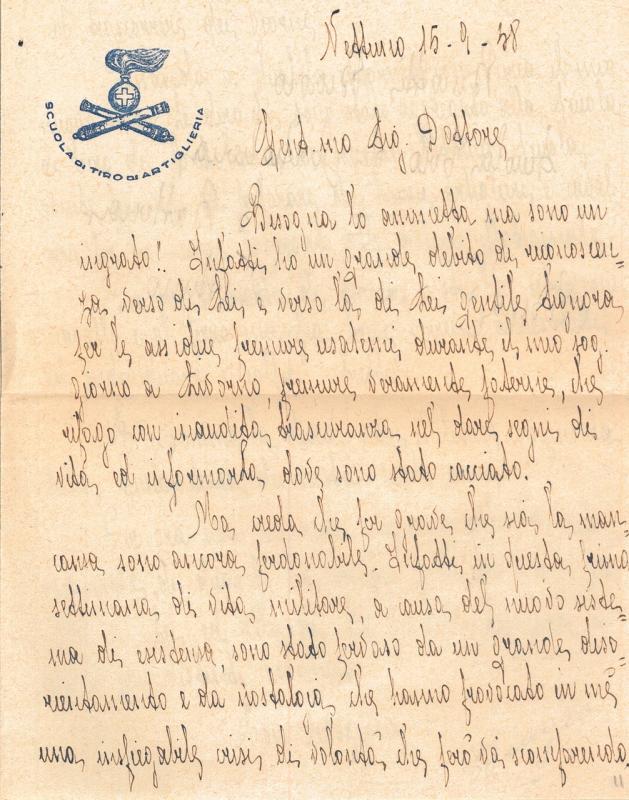 Nettuno 15-9-38
SCUOLA DI TIRO DI ARTIGLIERIA
Gent.mo Sig. Dottore
Bisogna lo ammetta ma sono un
ingrato! Infatti ho un grande debito di riconoscen-
za verso di Lei e verso la di Lei gentile Signora
per le assidue premure usatemi durante il mio sog-
giorno a , premure veramente paterne, che
ripago con inaudita trascuranza nel dare segni di
vita ed informarla dove sono stato cacciato.
Ma creda che per grave che sia la man-
canza sono ancora perdonabile. Infatti in questa prima
settimana di vita militare, a causa del nuovo siste-
ma di esistenza, sono stato pervaso da un grande diso-
rientamento e da nostalgia che hanno provocato in me
una inspiegabile crisi di volontà che però và scomparendo.
11